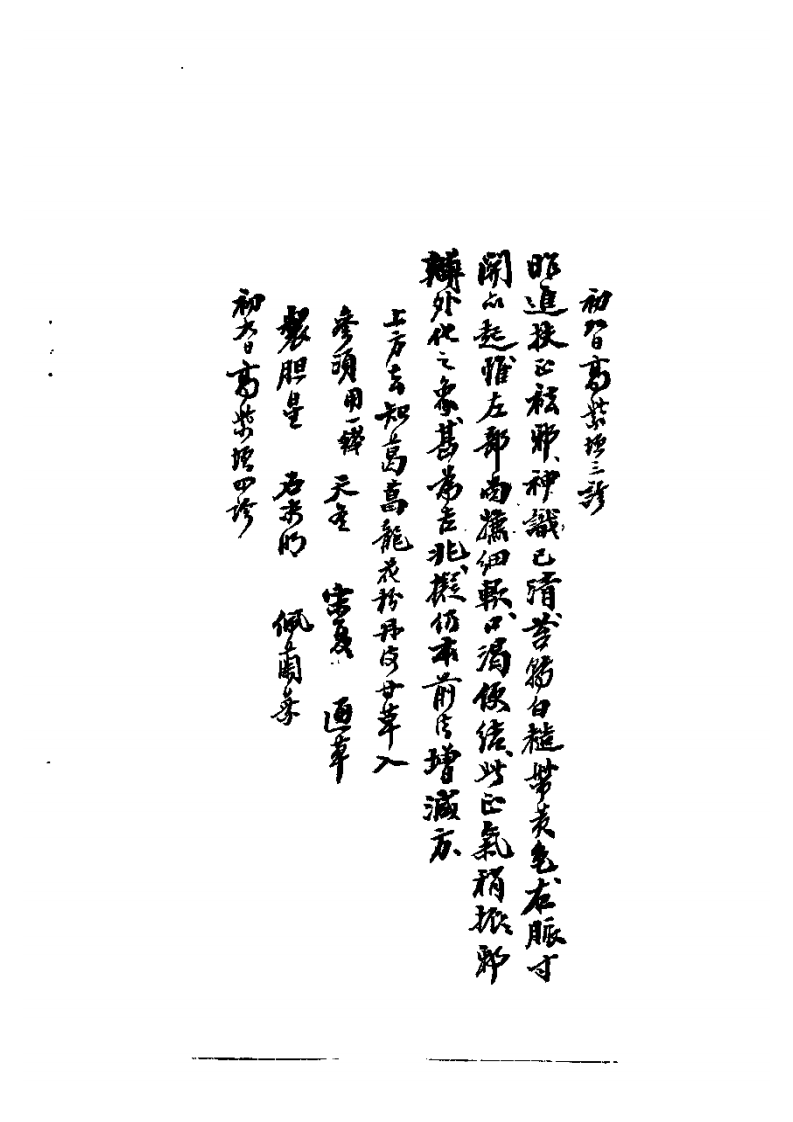 初八日高紫垣三診
昨進扶正祛邪、神識已清、苔舖白糙帶黃色、右脈寸
關亦起、惟左部尚濡細軟、口渴便結、此正氣稍振、邪
轉外化之象、甚為吉兆、擬仍本前法增減方、
上方去知 葛 龍 花粉 丹皮 甘草 入
參須用一錢 天冬 宋夏 通草
製胆星 石決明 佩蘭葉
初九日高紫垣四診